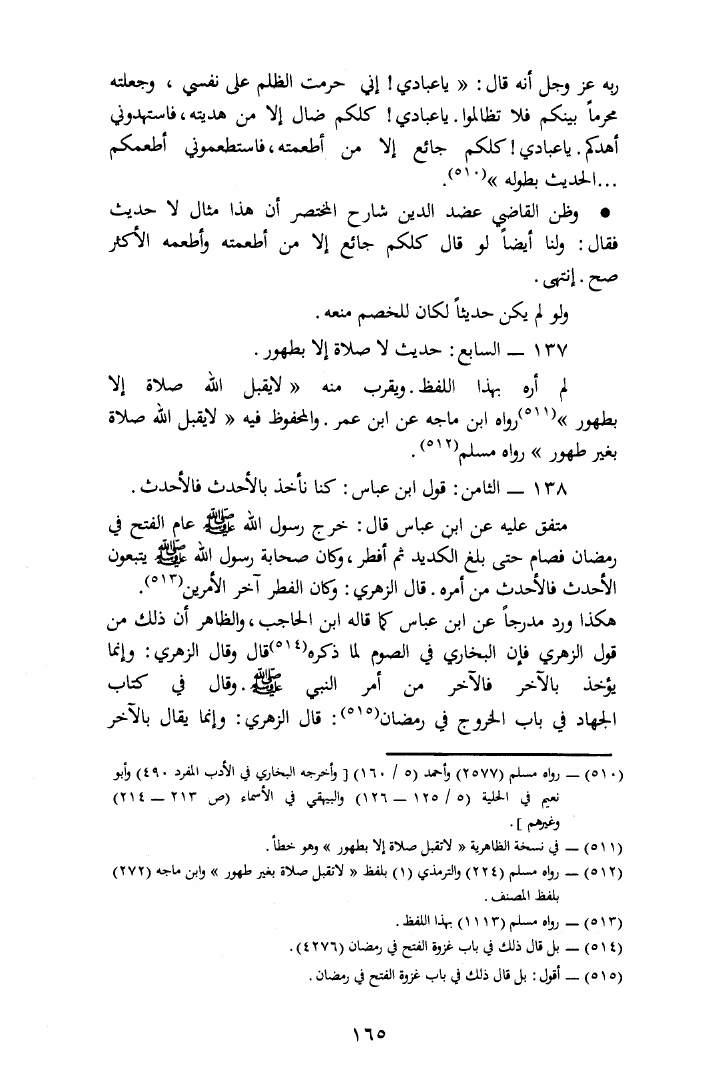 ربه عز وجل أنه قال : « ياعبادي ! إني حرمت الظلم على نفسي ، وجعلته
محرماً بينكم فلا تظالموا . ياعبادي ! كلكم ضال إلا من هديته ، فاستهدوني
أهدكم . ياعبادي ! كلكم جائع إلا من أطعمته ، فاستطعموني أطعمكم
...الحديث بطوله »(٥١٠).
• وظن القاضي عضد الدين شارح المختصر أن هذا مثال لا حديث
فقال : ولنا أيضاً لو قال كلكم جائع إلا من أطعمته وأطعمه الأكثر
صح . إنتهى .
ولو لم يكن حديثاً لكان للخصم منعه .
١٣٧ — السابع : حديث لا صلاة إلا بطهور .
لم أره بهذا اللفظ . ويقرب منه « لايقبل الله صلاة إلا
بطهور »(٥١١) رواه ابن ماجه عن ابن عمر . والمحفوظ فيه « لايقبل الله صلاة
بغير طهور » رواه مسلم(٥١٢) .
١٣٨ — الثامن : قول ابن عباس : كنا نأخذ بالأحدث فالأحدث .
متفق عليه عن ابن عباس قال : خرج رسول الله ﷺ عام الفتح في
رمضان فصام حتى بلغ الكديد ثم أفطر ، وكان صحابة رسول الله ﷺ يتبعون
الأحدث فالأحدث من أمره . قال الزهري : وكان الفطر آخر الأمرين(٥١٣).
هكذا ورد مدرجاً عن ابن عباس كما قاله ابن الحاجب ، والظاهر أن ذلك من
قول الزهري فإن البخاري في الصوم لما ذكره(٥١٤) قال وقال الزهري : وإنما
يؤخذ بالآخر فالآخر من أمر النبي ﷺ . وقال في كتاب
الجهاد في باب الخروج في رمضان(٥١٥) : قال الزهري : وإنما يقال بالآخر
(٥١٠) — رواه مسلم (٢٥٧٧) وأحمد (٥ / ١٦٠) [ وأخرجه البخاري في الأدب المفرد ٤٩٠) وأبو
نعيم في الحلية (٥ / ١٢٥ — ١٢٦) والبيهقي في الأسماء (ص ٢١٣ — ٢١٤)
وغيرهم ] .
(٥١١) — في نسخة الظاهرية « لاتقبل صلاة إلا بطهور » وهو خطأ .
(٥١٢) — رواه مسلم (٢٢٤) والترمذي (١) بلفظ « لاتقبل صلاة بغير طهور » وابن ماجه (٢٧٢)
بلفظ المصنف .
(٥١٣) — رواه مسلم (١١١٣) بهذا اللفظ .
(٥١٤) — بل قال ذلك في باب غزوة الفتح في رمضان (٤٢٧٦) .
(٥١٥) — أقول : بل قال ذلك في باب غزوة الفتح في رمضان .
١٦٥